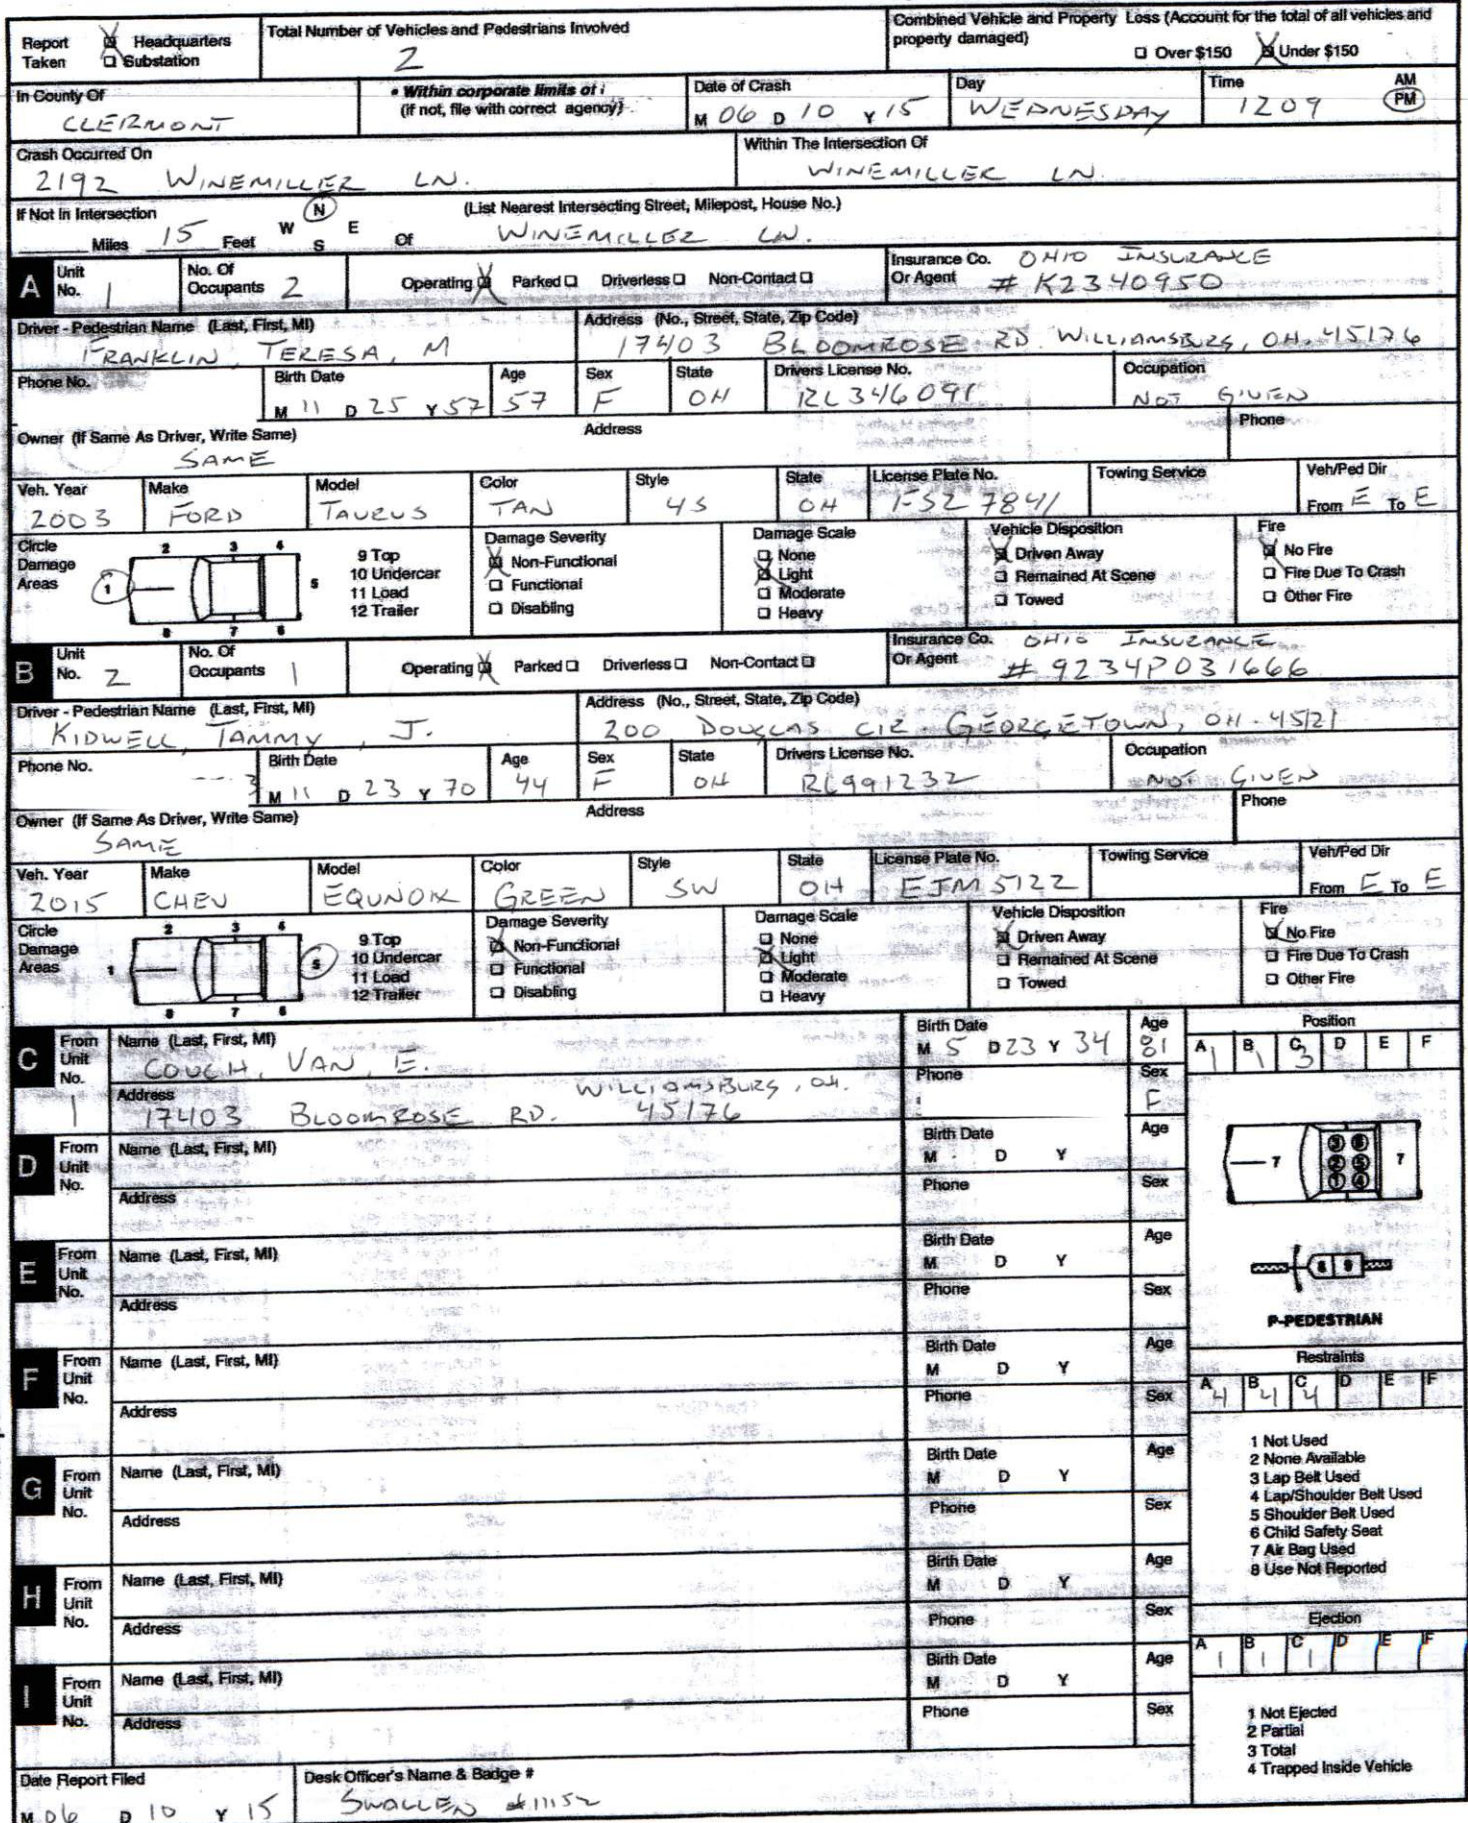 Report Taken ☒ Headquarters ☐ Substation
Total Number of Vehicles and Pedestrians Involved
2
Combined Vehicle and Property Loss (Account for the total of all vehicles and property damaged)
☐ Over $150 ☒ Under $150
In County Of
CLERMONT
• Within corporate limits of :
(if not, file with correct agency)
Date of Crash
M 06 D 10 Y 15
Day
WEDNESDAY
Time
1209
AM
PM
Crash Occurred On
2192 WINEMILLER LN.
Within The Intersection Of
WINEMILLER LN.
If Not In Intersection
Miles 15 Feet
N
W E
S
Of
(List Nearest Intersecting Street, Milepost, House No.)
WINEMILLER LN.
A
Unit No. 1
No. Of Occupants 2
Operating ☒ Parked ☐ Driverless ☐ Non-Contact ☐
Insurance Co. Or Agent
OHIO INSURANCE
# K2340950
Driver - Pedestrian Name (Last, First, MI)
FRANKLIN, TERESA, M
Address (No., Street, State, Zip Code)
17403 BLOOMROSE RD. WILLIAMSBURG, OH. 45176
Phone No.
Birth Date
M 11 D 25 Y 57
Age
57
Sex
F
State
OH
Drivers License No.
RL346091
Occupation
NOT GIVEN
Owner (If Same As Driver, Write Same)
SAME
Address
Phone
Veh. Year
2003
Make
FORD
Model
TAURUS
Color
TAN
Style
4S
State
OH
License Plate No.
FSZ 7841
Towing Service
Veh/Ped Dir
From E To E
Circle Damage Areas
1 2 3 4 5 6 7 8
9 Top
10 Undercar
11 Load
12 Trailer
Damage Severity
☒ Non-Functional
☐ Functional
☐ Disabling
Damage Scale
☐ None
☒ Light
☐ Moderate
☐ Heavy
Vehicle Disposition
☒ Driven Away
☐ Remained At Scene
☐ Towed
Fire
☒ No Fire
☐ Fire Due To Crash
☐ Other Fire
B
Unit No. 2
No. Of Occupants 1
Operating ☒ Parked ☐ Driverless ☐ Non-Contact ☐
Insurance Co. Or Agent
OHIO INSURANCE
# 9234P031666
Driver - Pedestrian Name (Last, First, MI)
KIDWELL, TAMMY, J.
Address (No., Street, State, Zip Code)
200 DOUGLAS CIR. GEORGETOWN, OH. 45121
Phone No.
Birth Date
M 11 D 23 Y 70
Age
44
Sex
F
State
OH
Drivers License No.
RL991232
Occupation
NOT GIVEN
Owner (If Same As Driver, Write Same)
SAME
Address
Phone
Veh. Year
2015
Make
CHEV
Model
EQUNOX
Color
GREEN
Style
SW
State
OH
License Plate No.
EJM 5122
Towing Service
Veh/Ped Dir
From E To E
Circle Damage Areas
1 2 3 4 5 6 7 8
9 Top
10 Undercar
11 Load
12 Trailer
Damage Severity
☒ Non-Functional
☐ Functional
☐ Disabling
Damage Scale
☐ None
☒ Light
☐ Moderate
☐ Heavy
Vehicle Disposition
☒ Driven Away
☐ Remained At Scene
☐ Towed
Fire
☒ No Fire
☐ Fire Due To Crash
☐ Other Fire
C
From Unit No.
1
Name (Last, First, MI)
COUCH, VAN, E.
Address
17403 BLOOMROSE RD. WILLIAMSBURG, OH. 45176
Birth Date
M 5 D 23 Y 34
Age
81
Phone
Sex
F
Position
A 1 B 1 C 3 D E F
D
From Unit No.
Name (Last, First, MI)
Address
Birth Date
M D Y
Age
Phone
Sex
7 3 6 2 5 1 4 7
E
From Unit No.
Name (Last, First, MI)
Address
Birth Date
M D Y
Age
Phone
Sex
8 9
P-PEDESTRIAN
F
From Unit No.
Name (Last, First, MI)
Address
Birth Date
M D Y
Age
Phone
Sex
Restraints
A 4 B 4 C 4 D E F
1 Not Used
2 None Available
3 Lap Belt Used
4 Lap/Shoulder Belt Used
5 Shoulder Belt Used
6 Child Safety Seat
7 Air Bag Used
8 Use Not Reported
G
From Unit No.
Name (Last, First, MI)
Address
Birth Date
M D Y
Age
Phone
Sex
H
From Unit No.
Name (Last, First, MI)
Address
Birth Date
M D Y
Age
Phone
Sex
Ejection
A 1 B 1 C 1 D E F
I
From Unit No.
Name (Last, First, MI)
Address
Birth Date
M D Y
Age
Phone
Sex
1 Not Ejected
2 Partial
3 Total
4 Trapped Inside Vehicle
Date Report Filed
M 06 D 10 Y 15
Desk Officer's Name & Badge #
SWALLEN #11152